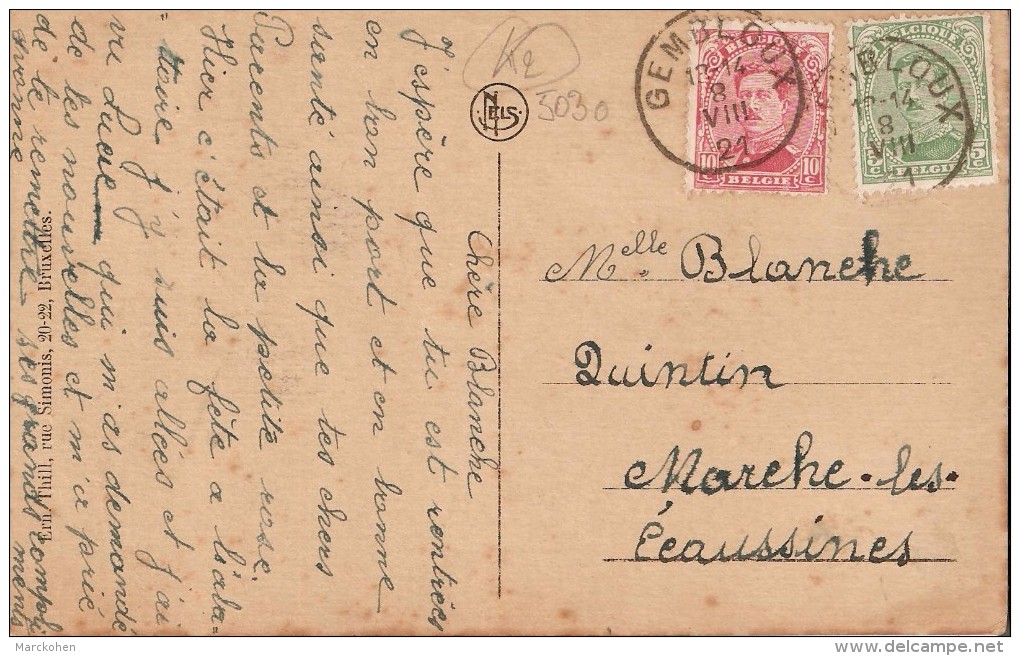 Chère Blanche
J'espère que tu est rentrées
en bon port et en bonne
santé ainsi que tes chers
Parents et la petite rose.
Hier c'était la fête a l'aba-
ttoire j'y suis allées et j'ai
vu Lucie qui m'as demandé
de tes nouvelles et m'a prié
de te remettre ses grands compli
mens
Yvonne
Ern. Thill, rue Simonis, 20-22, Bruxelles.
K2
5030
NELS
GEMBLOUX
12-14
8
VIII
21
BELGIQUE
10c 10c
BELGIE
GEMBLOUX
12-14
8
VIII
21
BELGIQUE
5c 5c
BELGIE
Melle Blanche
Quintin
Marche-les-
Écaussines
Marckohen
delcampe.net